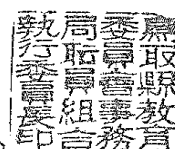 鳥取縣教育
委員會事務
局职員組合
執行委員長印